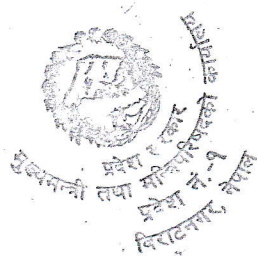 प्रदेश सरकार
मुख्यमन्त्री तथा मन्त्रिपरिषद्को कार्यालय
प्रदेश नं. १
विराटनगर, नेपाल